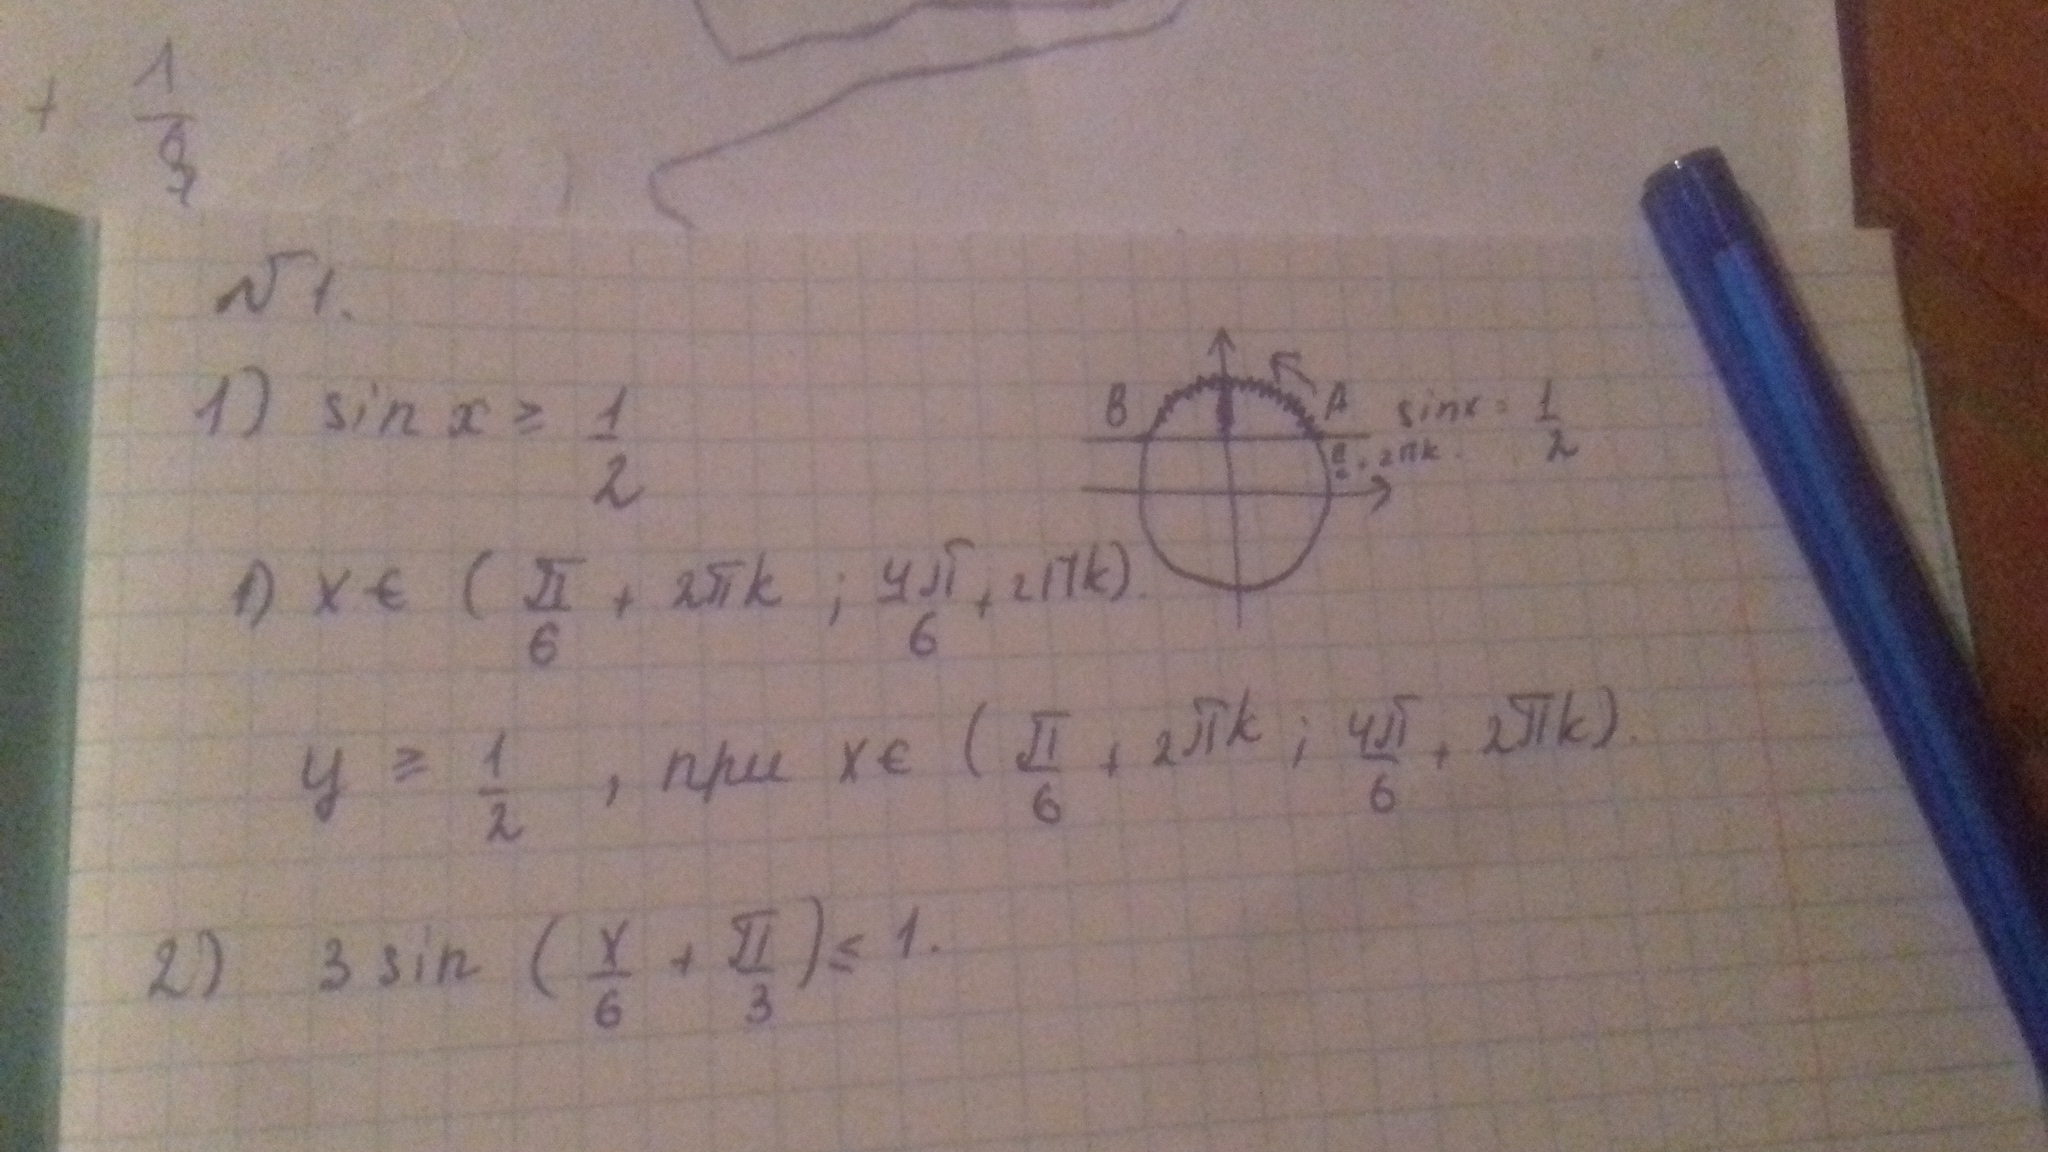 + 1/9
№1.
1) sin x ≥ 1/2
B A sinx = 1/2
π/6 + 2πk.
1) x ∈ (π/6 + 2πk ; 4π/6 + 2πk).
y ≥ 1/2 , при x ∈ (π/6 + 2πk ; 4π/6 + 2πk).
2) 3 sin (x/6 + π/3) ≤ 1.